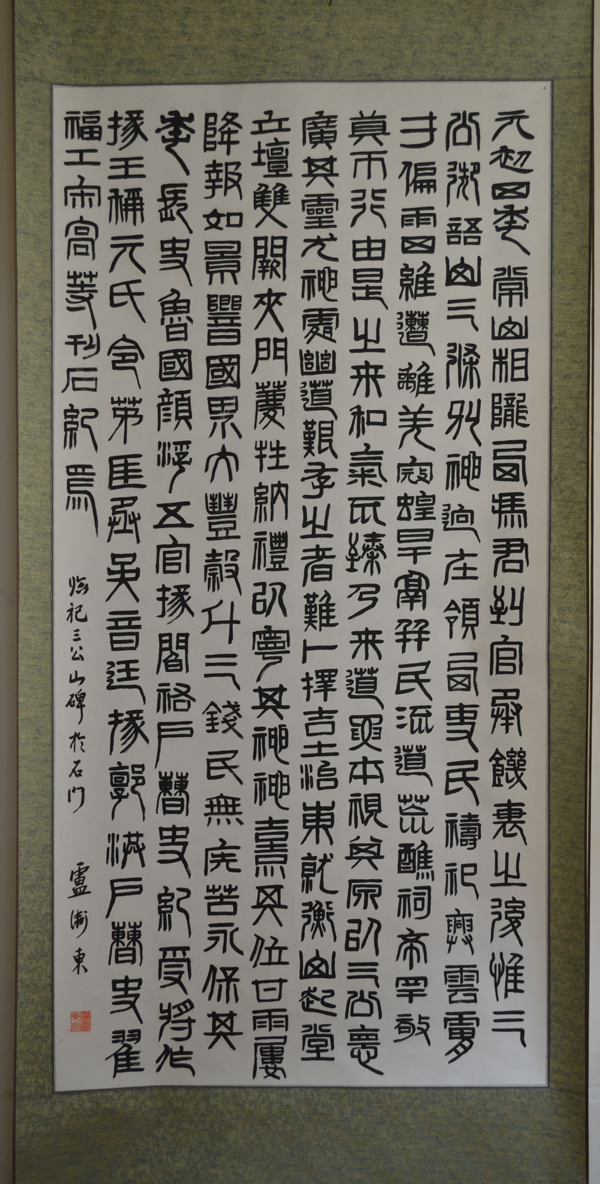 元初四年常山相隴西馮君到官承饑衰之後惟三
公御語山三條別神迥在領西吏民禱祀興雲膚
寸偏雨四維遭離羌寇蝗旱鬲并民流道荒醮祠希罕敬
奠不行由是之來和氣不臻乃來道要本祖其原以三公悳
廣其靈尤神處幽道艱存之者難卜擇吉土治東就衡山起堂
立壇雙闕夾門薦牲納禮以寧其神神熹其位甘雨屢
降報如景響國界大豐穀斗三錢民無疾苦永保其
年長史魯國顏浮五官掾閻祐戶曹史紀受將作
掾王𥙷元氏令茅匡丞吳音廷掾郭洪戶曹史翟
福工宋高等刊石紀焉
臨祀三公山碑於石門
盧衛東